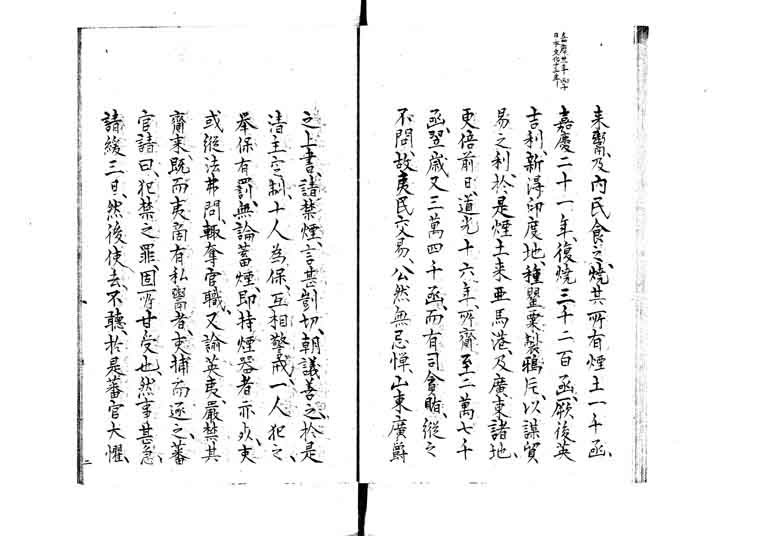 嘉慶廿一年丙子
日本文化十三年
来鬻、及内民食之、焼其所有煙土一千函、
嘉慶二十一年、復焼三千二百函、厥後英
吉利、新得印度地、種罌粟、製鴉片、以謀貿
易之利、於是煙土来亜馬港、及廣東諸地、
更倍前日、道光十六年、所齎至二萬七千
函、翌歳又三萬四千函、而有司貪賄、縦之
不問、故夷民交易、公然無忌憚、山東廣爵
之上書、請禁煙、言甚剴切、朝議善之、於是
清主定制、十人為保、互相警戒、一人犯之、
挙保有罰、無論蓄煙、即持煙器者亦死、吏
或縦法弗問、輒奪官職、又諭英夷、厳禁其
齎来、既而夷商有私鬻者、吏捕而逐之、蕃
官請曰、犯禁之罪、固所甘受也、然事甚急、
請緩三日、然後使去、不聴、於是蕃官大懼、
二